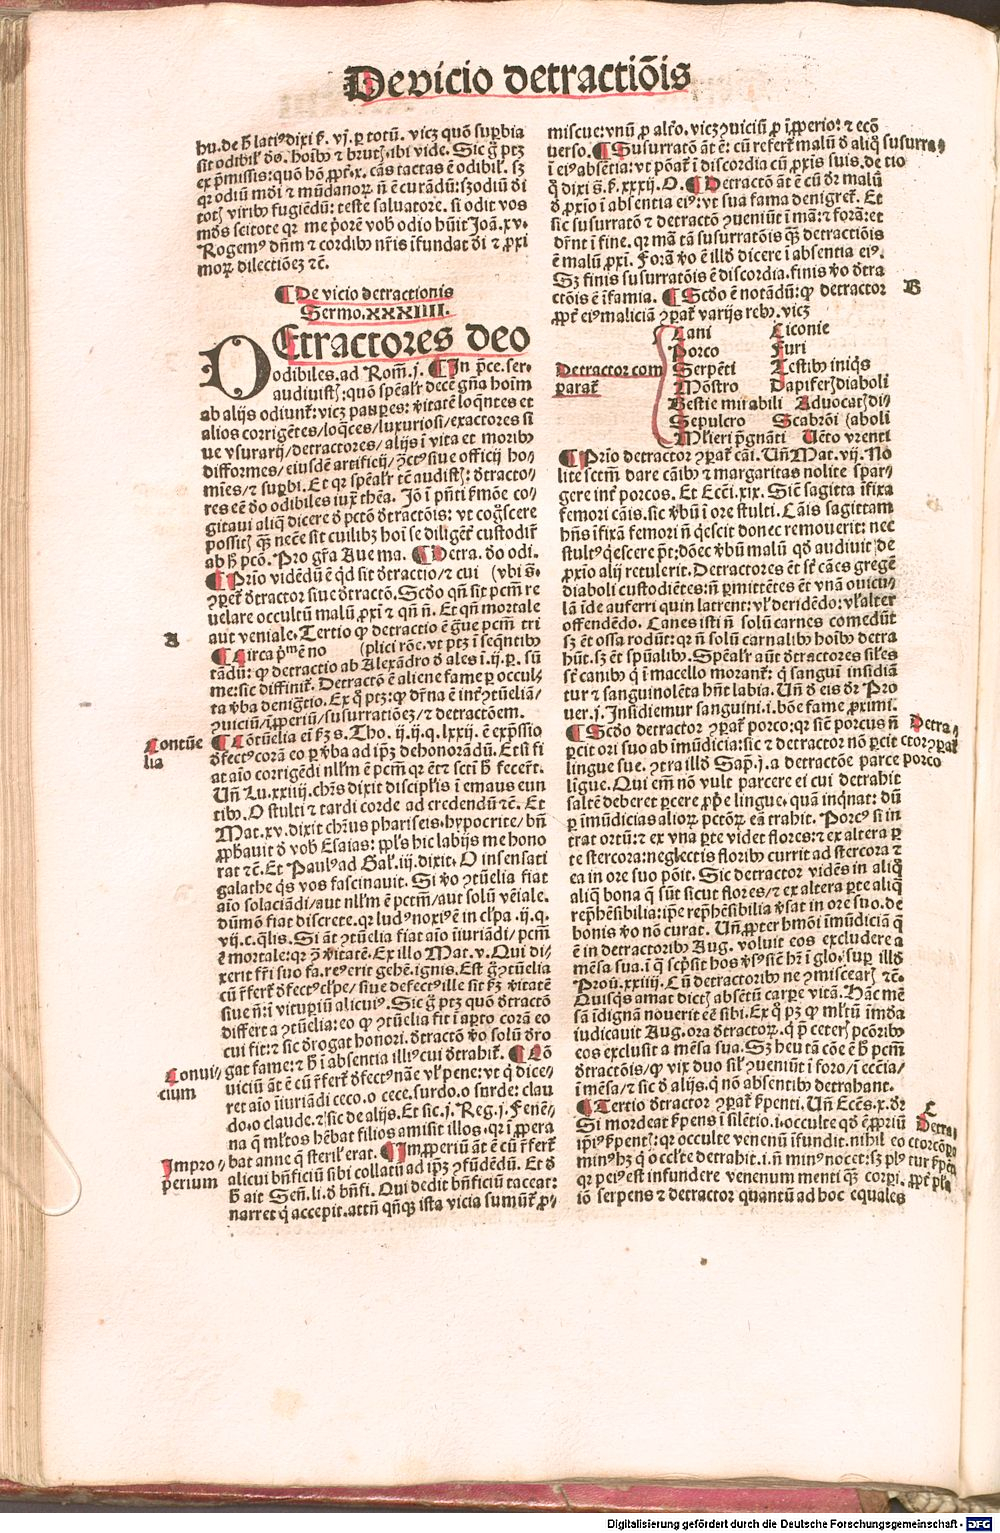 De vicio detractiõis
hu. de h̃ lati⁹ dixi ẜ. vj. ꝑ totũ. vicꝫ quõ suꝑbia
sit odibil' dō. hoĩbꝫ ⁊ brut꭛. ibi vide. Sic g̃ ptꝫ
ex p̃missis: quõ hõ ꝓpt̃. x. cãs tactas ẽ odibil'. sꝫ
qꝛ odiũ mũdi ⁊ mũdanoꝝ nõ ẽ curãdũ: sꝫ odiũ dei
tot꭛ viribꝫ fugiẽdũ: teste saluatore. si odit vos
mũdꝰ scitote qꝛ me pͥorẽ vob odio hũit Joã. xv.
Rogem⁹ dñm ⁊ cordibꝫ nr̃is ĩfundat dei ⁊ ꝓxi
moꝝ dilectiõeꝫ ⁊c̃.
De vicio detractionis
Sermo. xxxiiij.
DEtractores deo
odibiles. ad Rom̃. j. In p̃ce. ser.
audiuist꭛: quõ spẽal'r decẽ gña hoĩm
ab alijs odiunt̃: vicꝫ pauꝑes: v̾itatẽ loq̃ntes et
alios corrigẽtes/ loq̃ces/ luxuriosi/ exactores si
ue vsurarij/ detractores/ alijs ĩ vita et moribꝫ
difformes/ eiusdẽ artificij/ ꝯct⁹ siue officij ho⸗
mĩes/ ⁊ suꝑbi. Et qꝛ spẽal'r tẽ audist꭛: detracto⸗
res eẽ deo odibiles iux̃ thẽa. Jõ ĩ pñti ẜmõe co⸗
gitaui aliq̃ dicere de pctõ detractõis: vt cog̃scere
possit꭛ qͣꝫ necẽe sit cuilibꝫ hoĩ se diligẽt̃ custodir̃
ab h̾ pctõ. Pro gr̃a Aue ma. Detra. deo odi.
Prĩo vidẽdũ ẽ qͥd sit detractio/ ⁊ cui (vbi s̃.
ꝯꝑet̃ detractor siue detractõ. Scd̃o qñ sit pctm̃ re
uelare occultũ malũ ꝓxĩ ⁊ qñ ñ. Et qñ mortale
aut veniale. Tertio qꝙ detractio ẽ g̃ue pctm̃ tri
Circa p̾mũ ẽ no (plici rõe. vt ptꝫ ĩ seq̃ntibꝫ
tãdũ: ꝙ detractio ab Alexãdro de ales ĩ. ij. ꝑ. sũ
me: sic diffinit̃. Detractõ ẽ aliene fame ꝑ occul⸗
ta v̾ba denig̃tio. Ex qͦ ptꝫ: ꝙ dr̃na ẽ int̃ ꝯtũeliã/
ꝯuiciũ/ ĩꝓꝑiũ/ susurratiõeꝫ/ ⁊ detractõem.
Cõtũelia eĩ ẜꝫ s. Tho. ij. ij. q. lxxij. ẽ exp̃ssio
defect⁹ corã eo ꝑ v̾ba ad ip̃ꝫ dehonorãdũ. Et si fi
at aĩo corrigẽdi nll'm ẽ pctm̃ qꝛ ẽt̃ ⁊ scti h̾ fecer̃t.
Uñ Lu. xxiiij. ch̃s dixit discipl'is ĩ emaus eun
tibꝫ. O stulti ⁊ tardi corde ad credendũ ⁊c̃. Et
Mat. xv. dixit ch̾us phariseis. hypocrite/ bñ
ꝓph̾auit de vob Esaias: ppl's hic labijs me hono
rat ⁊c̃. Et Paul⁹ ad Gal'. iij. dixit. O insensati
galathe qͥs vos fascinauit. Si v̾o ꝯtũelia fiat
aĩo solaciãdi/ aut nll'm ẽ pctm̃/ aut solũ vẽiale.
dũmõ fiat discrete. qꝛ lud⁹ noxi⁹ ẽ in cl'pa. ij. q.
vij. c. q̃lis. Si ãt ꝯtũelia fiat aĩo ĩiuriãdi/ pctm̃
ẽ mortale: qꝛ ꝯ̾ v̾itatẽ. Ex illo Mat. v. Qui di⸗
xerit fr̃i suo fa. re⁹ erit gehẽ. ignis. Est g̃ ꝯtũelia
cũ r̃fert̃ defect⁹ cl'pe/ siue defect⁹ ille sit ẜꝫ v̾itatẽ
siue ñ: ĩ vituꝑiũ alicui⁹. Sic g̃ ptꝫ quõ detractõ
differt a ꝯtũelia: eo ꝙ ꝯtũelia fit ĩ aꝑto corã eo
cui fit: ⁊ sic derogat honori. detractõ v̾o solũ dero
gat fame: ⁊ h̾ ĩ absentia illi⁹ cui detrahit̃. Cõ
viciũ ãt ẽ cũ r̃fert̃ defect⁹ nãe vl' pene: vt qͥ dice⸗
ret aĩo ĩiuriãdi ceco. o cece. surdo. o surde: clau
do. o claude. ⁊ sic de alijs. Et sic. j. Reg. j. Fenẽ⸗
na q̃ ml'tos hẽbat filios amisit illos. qꝛ ĩꝓpera
bat anne q̃ steril' erat. Imꝓꝑiũ ãt ẽ cũ r̃fert̃
alicui bñficiũ sibi collatũ ad ip̃ꝫ ꝯfũdẽdũ. Et de
h̾ ait Señ. li. de bñfi. Qui dedit bñficiũ taceat:
narret qͥ accepit. attñ qñqꝫ ista vicia sumũt̃ ꝓ⸗
miscue: vnũ ꝓ alr̃o. vicꝫ ꝯuiciũ ꝓ ĩꝓꝑio: ⁊ ecõ
uerso. Susurratõ ãt ẽ: cũ refert̃ malũ de aliqͦ
ĩ ei⁹ absẽtia: vt põat̃ ĩ discordia cũ ꝓxĩs suis. de
qͦ dixi s̃. ẜ. xxxij. O. Detractõ ãt ẽ cũ dr̃ malũ
de ꝓxĩo ĩ absentia ei⁹: vt sua fama denigret̃. Et
sic susurratõ ⁊ detractõ ꝯueniũt ĩ mã: ⁊ forã: et
dr̃nt ĩ fine. qꝛ mã tã susurratõis qͣꝫ detractiõis
ẽ malũ ꝓxĩ. Forã v̾o ẽ illd̃ dicere ĩ absentia ei⁹.
Sꝫ finis susurratõis ẽ discordia. finis v̾o detra
ctõis ẽ ĩfamia. Scd̃o ẽ notãdũ: ꝙ detractor
ꝓpt̃ ei⁹ maliciã ꝯꝑat̃ varijs rebꝫ. vicꝫ
Detractor com
parat̃
Cani Ciconie
Porco Furi
Serpẽti Testibꝫ iniqͥs
Mõstro Dapifer꭛ diaboli
Bestie mirabili Aduocat꭛ di⸗
Sepulcro Scabrõi (aboli
Ml'ieri p̃gnãti Uẽto vrenti
Prĩo detractor ꝯꝑat̃ cãi. Uñ Mat. vij. No
lite sctm̃ dare cãibꝫ ⁊ margaritas nolite spar⸗
gere int̃ porcos. Et Ecc̃i. xix. Sic̃ sagitta ĩfixa
femori cãis. sic v̾bũ ĩ ore stulti. Cãis sagittam
hñs ĩfixã femori ñ qͥescit donec remouerit: nec
stult⁹ qͥescere p̃t: dõec v̾bũ malũ qd̃ audiuit de
ꝓxĩo alij retulerit. Detractores ẽt sũt cães gregẽ
diaboli custodiẽtes: ñ ꝑmittẽtes ẽt vnã ouicu⸗
lã ĩde auferri quin latrent: vl' deridẽdo: vl' alter
offendẽdo. Canes isti ñ solũ carnes comedũt
sꝫ ẽt ossa rodũt: qꝛ ñ solũ carnalibꝫ hoĩbꝫ detra
hũt. sꝫ ẽt sp̃ualibꝫ. Spẽal'r aũt detractores sil'es
sũt canibꝫ qͥ ĩ macello morant̃: qͥ sanguĩ insidiã
tur ⁊ sanguinolẽta hñt labia. Uñ de eis dr̃ Pro
uer. j. Insidiemur sanguini. i. bõe fame ꝓximi.
Scd̃o detractor ꝯꝑat̃ porco: qꝛ sic̃ porcus ñ
ꝑcit ori suo ab ĩmũdicia: sic ⁊ detractor nõ ꝑcit
lingue sue. ꝯtra illd̃ Sap̃. j. a detractõe parce
lĩgue. Qui em̃ nõ vult parcere ei cui detrahit
saltẽ deberet ꝑcere ꝓp̾e lingue, quã inqͥnat: dũ
ꝑ ĩmũdicias alioꝝ pctõꝝ eã trahit. Porc⁹ si in
trat ortũ: ⁊ ex vna ꝑte videt flores: ⁊ ex altera ꝑ
te stercora: neglectis floribꝫ currit ad stercora ⁊
ea in ore suo põit. Sic detractor vidẽs in aliqͦ
aliq̃ bona q̃ sũt sicut flores/ ⁊ ex altera ꝑte aliq̃
rep̾hẽsibilia: ip̃e rep̾hẽsibilia v̾sat in ore suo. de
bonis v̾o nõ curat. Uñ ꝓpter hmõi ĩmũdiciã q̃
ẽ in detractoribꝫ Aug. voluit eos excludere a
mẽsa sua. ĩ q̃ scp̾sit hos v̾s⁹ siẽ hr̃ ĩ glo. suꝑ illd̃
Prou̾. xxiij. Cũ detractoribꝫ ne ꝯmisceart꭛ ⁊c̃.
Quisqͥs amat dict꭛ absẽtũ carꝑe vitã. Hãc mẽ
sã ĩdignã nouerit eẽ sibi. Ex qͦ pꝫ ꝙ ml'tũ ĩmũda
iudicauit Aug. ora detractoꝝ. qͥ p̾ ceter꭛ pctõribꝫ
eos exclusit a mẽsa sua. Sꝫ heu tã cõe ẽ h̾ pctm̃
detractõis/ ꝙ vix duo sil' ꝯueniũt ĩ foro/ ĩ ecc̃ia/
ĩ mẽsa/ ⁊ sic de alijs. qͥ nõ absentibꝫ detrahant.
Tertio detractor ꝯꝑat̃ serpenti. Uñ Ecc̃s. x. dr̃
Si mordeat serpens ĩ silẽtio. i. occulte qd̃ ẽ ꝓpriũ
ip̃i⁹ serpent꭛: qꝛ occulte venenũ ĩfundit. nihil eo
min⁹ hꝫ qͥ occl'te detrahit. i. ñ min⁹ nocet: sꝫ pl⁹
qꝛ pei⁹ est infundere venenum menti qͣꝫ corpori.
io serpens ⁊ detractor quantũ ad hoc equales
A
Contũe
lia
Conui⸗
cium
Impro⸗
perium
susurra⸗
tio
B
Detra⸗
ctor ꝯꝑat̃
porco
C
Detra⸗
ctor cõpa
tur